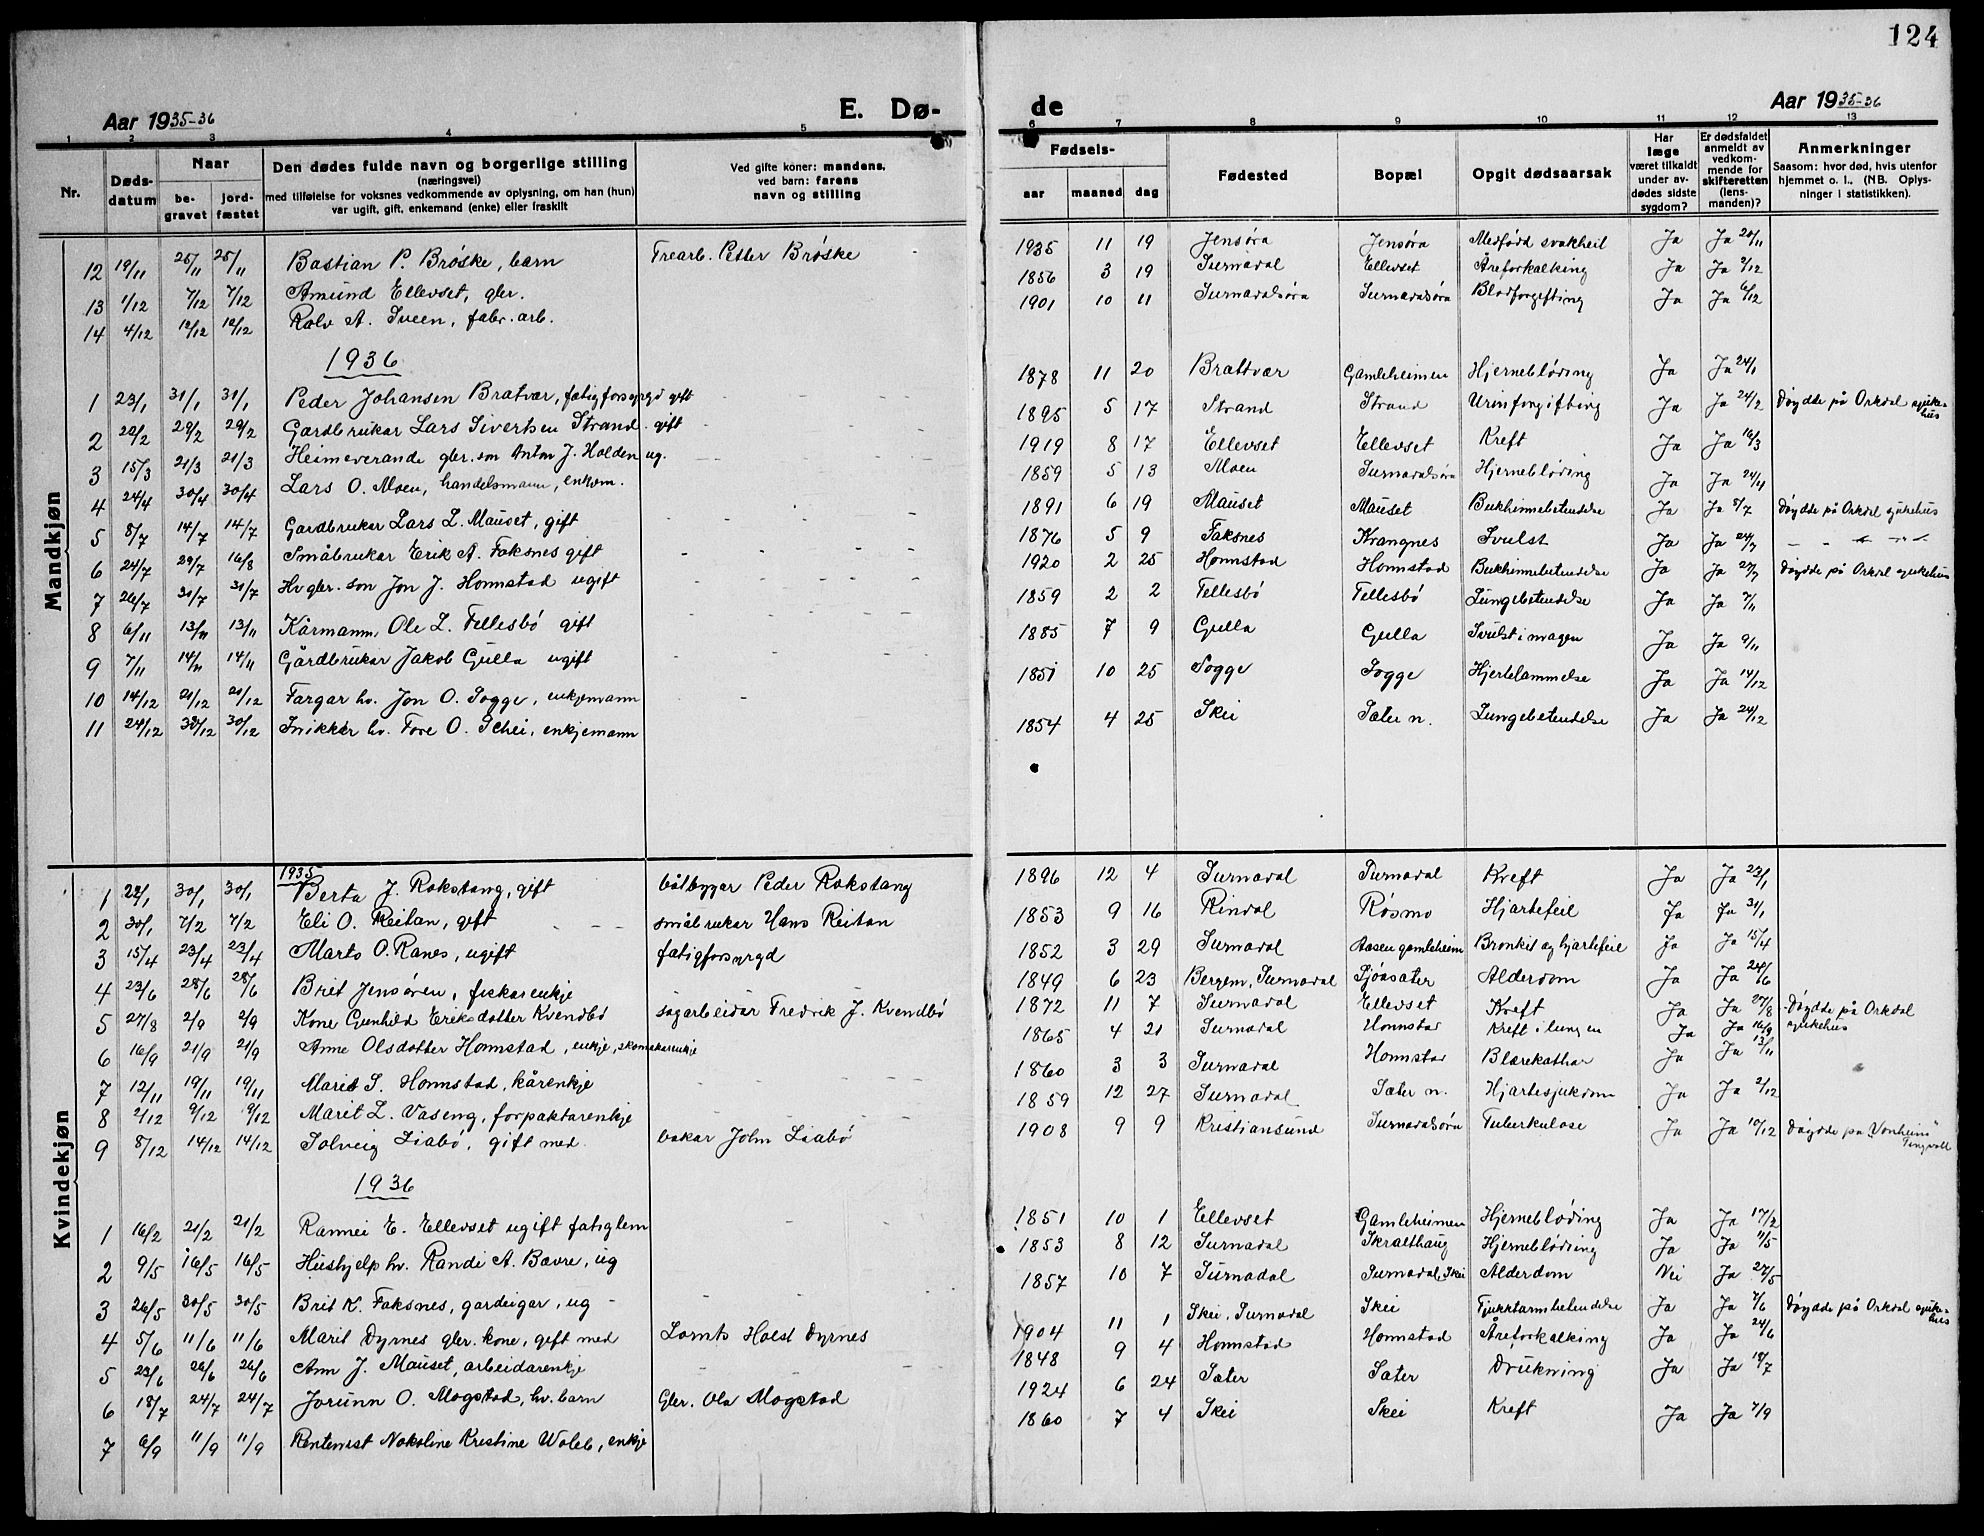 124
Aar 1935-36 E. Dø- de Aar 1935-36
1 2 3 4 5 6 7 8 9 10 11 12 13
Nr. Døds-datum Naar be-gravet jord-fæstet Den dødes fulde navn og borgerlige stilling (næringsvei) med tilføielse for voksnes vedkommende av oplysning, om han (hun) var ugift, gift, enkemand (enke) eller fraskilt Ved gifte koner: mandens, ved barn: farens navn og stilling Fødsels- aar maaned dag Fødested Bopæl Opgit dødsaarsak Har læge været tilkaldt under av-dødes sidste sygdom? Er dødsfaldet anmeldt av vedkom-mende for skifteretten (lens-manden)? Anmerkninger Saasom: hvor død, hvis utenfor hjemmet o. l., (NB. Oplys-ninger i statistikken).
Mandkjøn
12 19/11 25/11 25/11 Bastian P. Brøske, barn Trearb. Petter Brøske 1935 11 19 Jensøra Jensøra Medfødd svakheit Ja Ja 20/11
13 1/12 7/12 7/12 Amund Ellevset, gbr. 1856 3 19 Surnadal Ellevset Åreforkalking Ja Ja 2/12
14 4/12 12/12 12/12 Rolv A. Sveen, fabr. arb. 1901 10 11 Surnadalsøra Surnadalsøra Blodforgifting Ja Ja 6/12
1936
1 23/1 31/1 31/1 Peder Johansen Bratvær, fatigforsyrgd gift 1878 11 20 Brattvær Gamleheimen Hjernebløding Ja Ja 24/1
2 22/2 29/2 29/2 Gardbrukar Lars Sivertsen Strand gift 1895 5 17 Strand Strand Urinforgifting Ja Ja 24/2 Døydde på Orkdal sjukehus
3 15/3 21/3 21/3 Heimeverande gbr. son Anton J. Holden ug. 1919 8 17 Ellevset Ellevset Kreft Ja Ja 16/3
4 24/4 30/4 30/4 Lars O. Moen, handelsmann, enkjem. 1859 5 13 Moen Surnadalsøra Hjernebløding Ja Ja 24/4
5 8/7 14/7 14/7 Gardbrukar Lars L. Mauset, gift 1891 6 19 Mauset Mauset Bukhinnebetendelse Ja Ja 8/7 Døydde på Orkdal sjukehus
6 24/7 29/7 16/8 Småbrukar Erik A. Faksnes gift 1876 5 9 Faksnes Krangnes Svulst Ja Ja 24/7 - - - " -
7 26/7 31/7 31/7 Hv gbr. son Jon J. Honnstad ugift 1920 2 25 Honnstad Honnstad Bukhinnebetendelse Ja Ja 27/7 Døydde på Orkdal sjukehus
8 6/11 13/11 13/11 Kårmann, Ole L. Tellesbø gift 1859 2 2 Tellesbø Tellesbø Lungebetendelse Ja Ja 7/11
9 7/11 14/11 14/11 Gårdbrukar Jakob Gulla ugift 1885 7 9 Gulla Gulla Svulst i magen Ja Ja 9/11
10 14/12 21/12 21/12 Fargar hv. Jon O. Sogge, enkjemann 1851 10 25 Sogge Sogge Hjertelammelse Ja Ja 14/12
11 24/12 30/12 30/12 Snikkar hv. Tore O. Schei, enkjemann 1854 4 25 Skei Sæter n. Lungebetendelse Ja Ja 24/12
Kvindekjøn
1935
1 22/1 30/1 30/1 Berta J. Rokstang, gift båtbyggar Peder Rokstang 1896 12 4 Surnadal Surnadal Kreft Ja Ja 23/1
2 30/1 7/2 7/2 Eli O. Reitan, gift småbrukar Hans Reitan 1853 9 16 Rindal Røsmo Hjartefeil Ja Ja 31/1
3 15/4 23/4 23/4 Marta O. Ranes, ugift fatigforsyrgd 1852 3 29 Surnadal Aasen gamleheim Bronkit og hjartefeil Ja Ja 15/4
4 23/6 28/6 28/6 Brit Jensøren, fiskarenkje 1849 6 23 Bergem, Surnadal Sjøasæter Alderdom Ja Ja 24/6
5 27/8 2/9 2/9 Kone Gunhild Eriksdotter Kvendbø sagarbeidar Fredrik J. Kvendbø 1872 11 7 Surnadal Ellevset Kreft Ja Ja 27/8 Døydde på Orkdal sjukehus
6 16/9 21/9 21/9 Anne Olsdotter Honnstad, enkje, skomakarenkje 1865 4 21 Surnadal Honnstad Kreft i lungen Ja Ja 16/9
7 12/11 19/11 19/11 Marit S. Honnstad, kårenkje 1860 3 3 Surnadal Honnstad Blærekathar Ja Ja 13/11
8 2/12 9/12 9/12 Marit L. Vaseng, forpaktarenkje 1859 12 27 Surnadal Sæter n. Hjartesjukdom Ja Ja 2/12
9 8/12 14/12 14/12 Solveig Liabø, gift med bakar John Liabø 1908 9 9 Kristiansund Surnadalsøra Tuberkulose Ja Ja 10/12 Døydde på "Vonheim" Tingvoll
1936
1 16/2 21/2 21/2 Rannei E. Ellevset ugift fatiglem 1851 10 1 Ellevset Gamleheimen Hjernebløding Ja Ja 17/2
2 9/5 16/5 16/5 Hushjelp hv. Randi A. Bævre, ug 1853 8 12 Surnadal Skralthaug Hjernebløding Ja Ja 11/5
3 26/5 30/5 30/5 Brit K. Faksnes, gardeigar, ug 1857 10 7 Surnadal Surnadal, Skei Alderdom Nei Ja 27/5
4 5/6 11/6 11/6 Marit Dyrnes gbr. kone, gift med Lornts Holst Dyrnes 1904 11 1 Skei, Surnadal Skei Tjukktarmbetendelse Ja Ja 7/6 Døydde på Orkdal sjukehus
5 23/6 26/6 26/6 Ann J. Mauset, arbeidarenkje 1848 9 4 Honnstad Honnstad Åreforkalking Ja Ja 24/6
6 18/7 24/7 24/7 Jorunn O. Mogstad, hv. barn Gbr. Ola Mogstad 1924 6 24 Sæter Sæter Drukning Ja Ja 18/7
7 6/9 11/9 11/9 Rentenist Nokoline Kristine Woleb, enkje 1860 7 4 Skei Skei Kreft Ja Ja 7/9